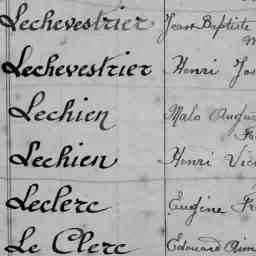 Lechevestrier Jean Baptiste
Lechevestrier Henri Jos
Lechien Malo Augus
Lechien Henri Vic
Leclerc Eugène Fr
Le Clerc Edouard Aim